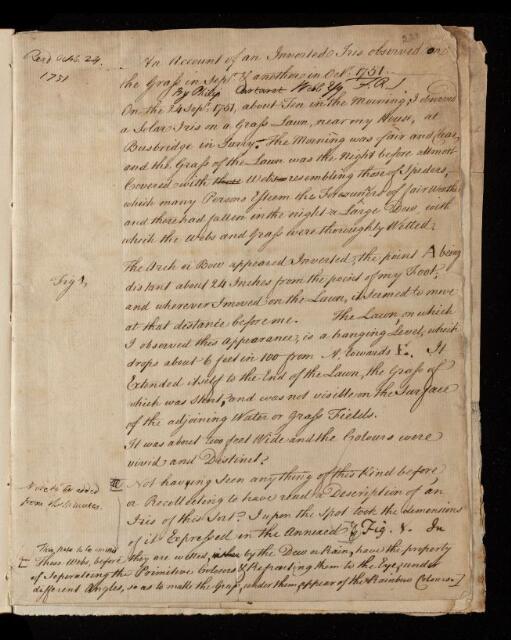 Read Octob. 24.
1751
An Account of an Inverted Iris observed on
the Grass in Sept.r & another in Oct.r 1751.
By Philip Carteret Webb Esq. F.R.S.
On the 24 Sept.r 1751, about Ten in the Morning, I observed
a Solar Iris on a Grass Lawn, near my House, at
Busbridge in Surry. The Morning was fair and clear,
and the Grass of the Lawn was the Night before allmost
Covered with Webs resembling those of Spiders,
which many Persons Esteem the Forerunners of fair Weather
and there had fallen in the night a Large Dew, with
which the Webs and Grass were thoroughly Wetted.
Fig 1.
The Arch or Bow appeared Inverted, the point A being
distant about 24 Inches from the point of my Foot,
and wherever I moved on the Lawn, it seemed to move
at that distance before me. The Lawn, on which
I observed this Appearance, is a hanging Level, which
drops about 6 feet in 100 from N. towards E. It
Extended itself to the End of the Lawn, the Grass of
which was Short, and was not visible on the Surface
of the adjoining Water or Grass Fields.
It was about 200 feet Wide and the Colours were
vivid and Distinct.
Note to be added
from the
Not having Seen any thing of this Kind before,
or Recollecting to have read a Description of an
Iris of this Sort. I upon the Spot took the dimensions
of it Expressed in the Annexed Fig. 1. In
This para is to
These Webs, before they are wetted, by the Dew or Rain, have the property
of Separating the Primitive Colours & Refracting them to the Eye, under
different Angles, so as to make the Grass, under them appear of the Rainbow Colours.]